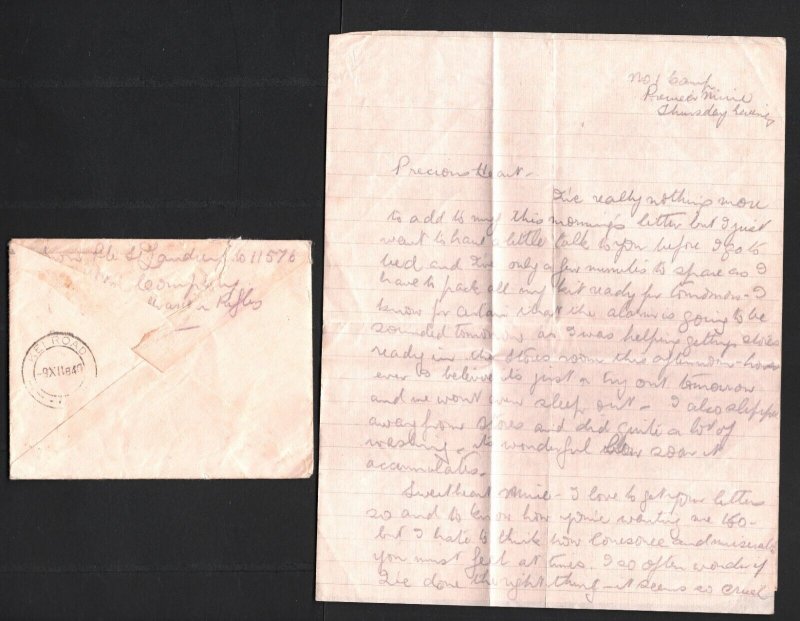 From Pte S Landing No 11576
Company
Rifles
KEI ROAD
-9XII840
No 1 Camp
Premier Mine
Thursday Evening
Precious Heart -
I've really nothing more
to add to my this morning's letter but I just
want to have a little talk to you before I go to
bed and I've only a few minutes to spare as I
have to pack all my kit ready for tomorrow - I
know for certain that the alarm is going to be
sounded tomorrow as I was helping getting stores
ready in the stores room this afternoon - how
ever so believe its just a try out tomorrow
and we wont even sleep out - I also slipped
away from stores and did quite a lot of
washing - its wonderful how soon it
accumulates.
Sweetheart Mine - I love to get your letters
so and to know how you're wanting me too -
but I hate to think how lonesome and miserable
you must feel at times. I so often wonder if
I've done the right thing - it seems so cruel